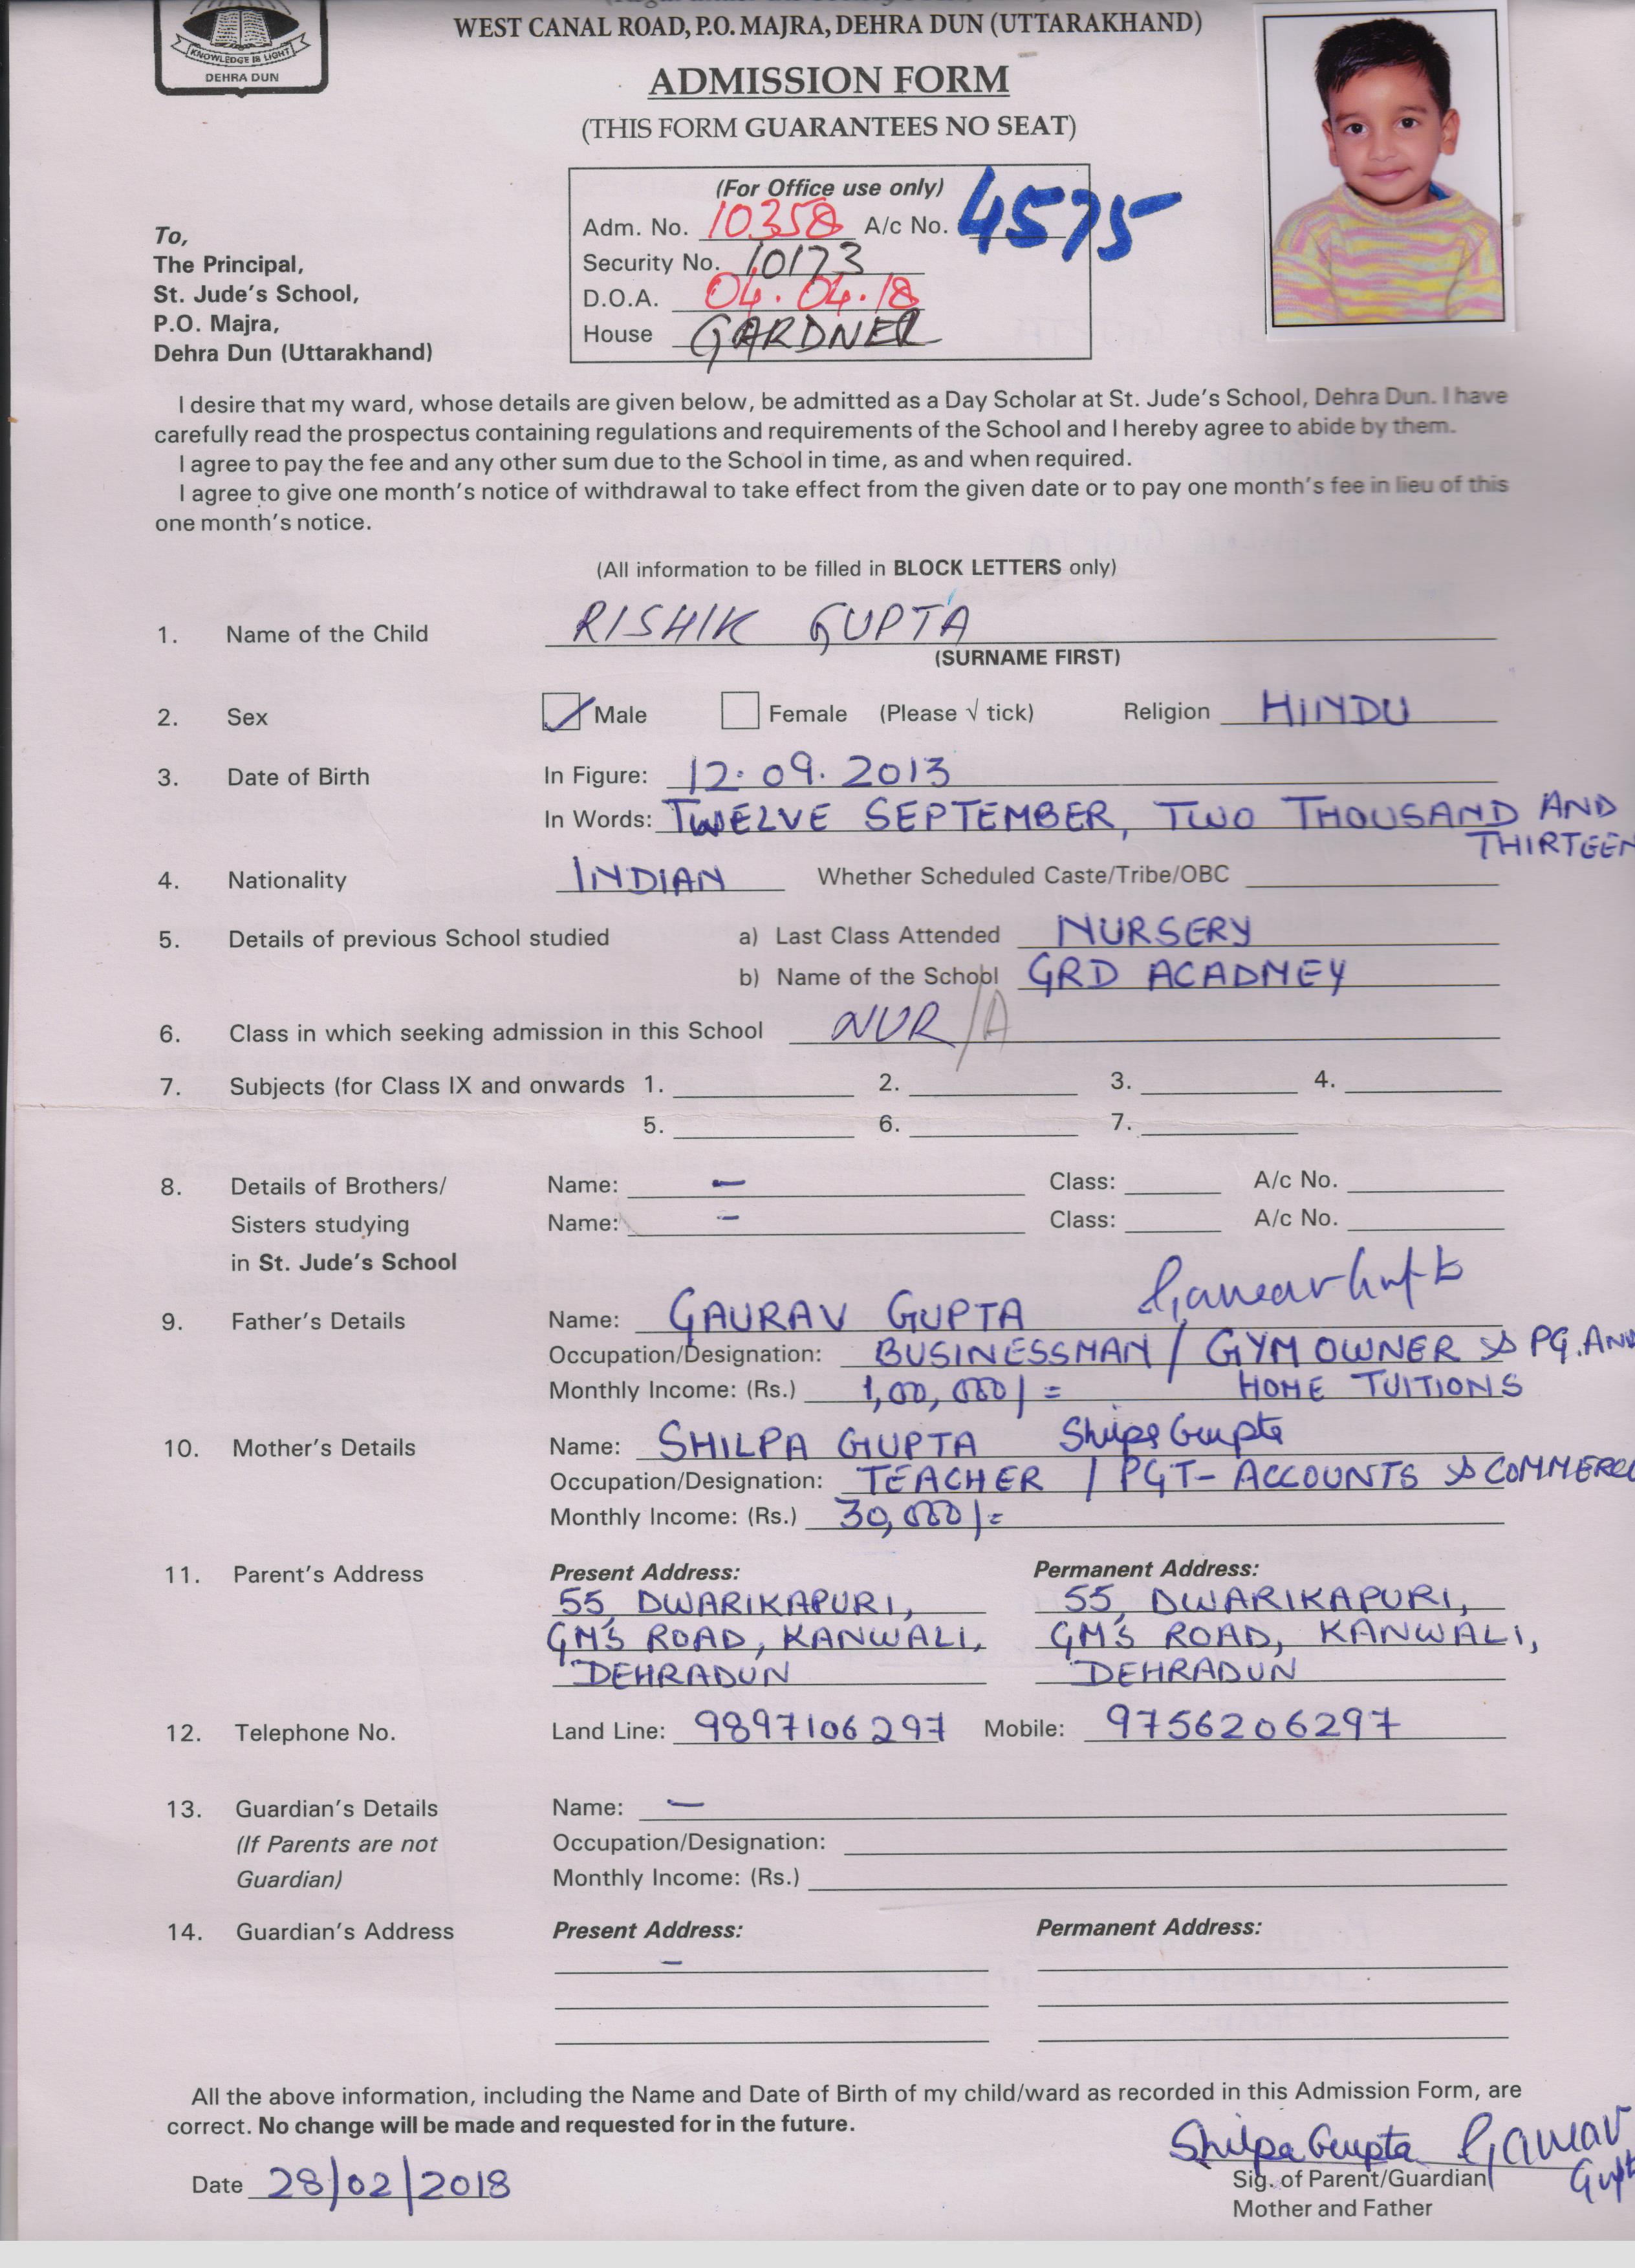 KNOWLEDGE IS LIGHT
DEHRA DUN
WEST CANAL ROAD, P.O. MAJRA, DEHRA DUN (UTTARAKHAND)
ADMISSION FORM
(THIS FORM GUARANTEES NO SEAT)
(For Office use only)
Adm. No. 10358 A/c No. 4575
Security No. 10173
D.O.A. 04.04.18
House GARDNER
To,
The Principal,
St. Jude's School,
P.O. Majra,
Dehra Dun (Uttarakhand)
I desire that my ward, whose details are given below, be admitted as a Day Scholar at St. Jude's School, Dehra Dun. I have
carefully read the prospectus containing regulations and requirements of the School and I hereby agree to abide by them.
I agree to pay the fee and any other sum due to the School in time, as and when required.
I agree to give one month's notice of withdrawal to take effect from the given date or to pay one month's fee in lieu of this
one month's notice.
(All information to be filled in BLOCK LETTERS only)
1. Name of the Child RISHIK GUPTA
(SURNAME FIRST)
2. Sex Male Female (Please √ tick) Religion HINDU
3. Date of Birth In Figure: 12.09.2013
In Words: TWELVE SEPTEMBER, TWO THOUSAND AND
THIRTEEN
4. Nationality INDIAN Whether Scheduled Caste/Tribe/OBC
5. Details of previous School studied a) Last Class Attended NURSERY
b) Name of the School GRD ACADMEY
6. Class in which seeking admission in this School NUR/A
7. Subjects (for Class IX and onwards 1. 2. 3. 4.
5. 6. 7.
8. Details of Brothers/ Name: – Class: A/c No.
Sisters studying Name: – Class: A/c No.
in St. Jude's School
9. Father's Details Name: GAURAV GUPTA Gaurav Gupta
Occupation/Designation: BUSINESSMAN / GYM OWNER & PG. AND
Monthly Income: (Rs.) 1,00,000/= HOME TUITIONS
10. Mother's Details Name: SHILPA GUPTA Shilpa Gupta
Occupation/Designation: TEACHER / PGT- ACCOUNTS & COMMERCE
Monthly Income: (Rs.) 30,000/=
11. Parent's Address Present Address: Permanent Address:
55, DWARIKAPURI, 55, DWARIKAPURI,
GM'S ROAD, KANWALI, GM'S ROAD, KANWALI,
DEHRADUN DEHRADUN
12. Telephone No. Land Line: 9897106297 Mobile: 9756206297
13. Guardian's Details Name: –
(If Parents are not Occupation/Designation:
Guardian) Monthly Income: (Rs.)
14. Guardian's Address Present Address: Permanent Address:
–
All the above information, including the Name and Date of Birth of my child/ward as recorded in this Admission Form, are
correct. No change will be made and requested for in the future.
Shilpa Gupta Gaurav Gupta
Date 28/02/2018 Sig. of Parent/Guardian
Mother and Father